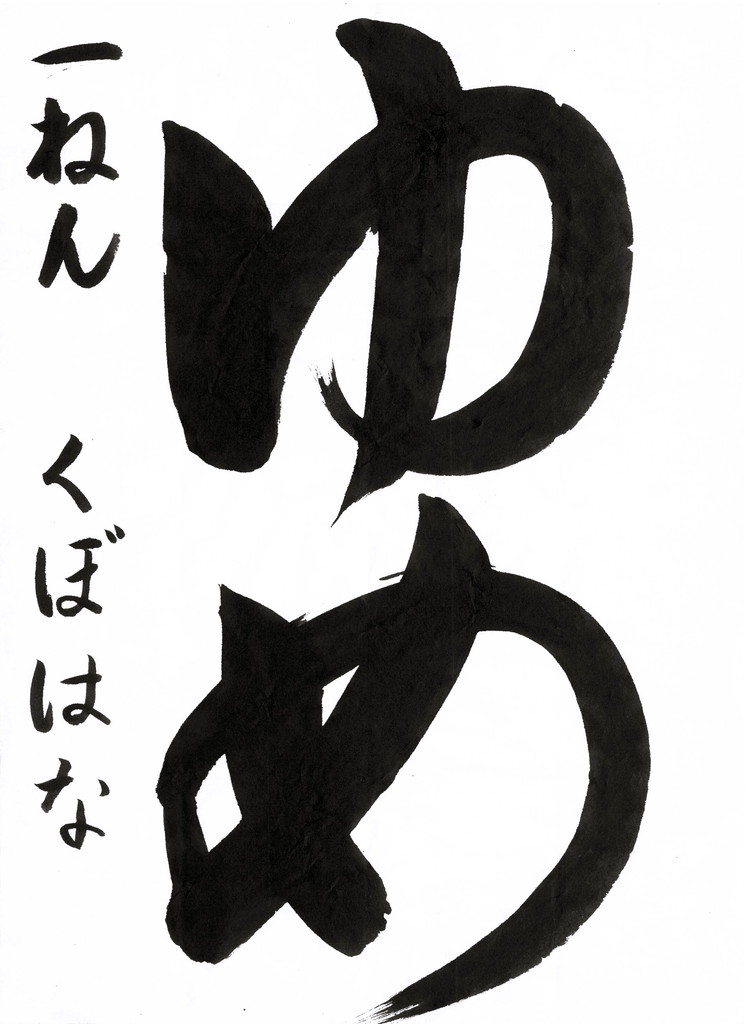 ゆめ
一ねん くぼはな